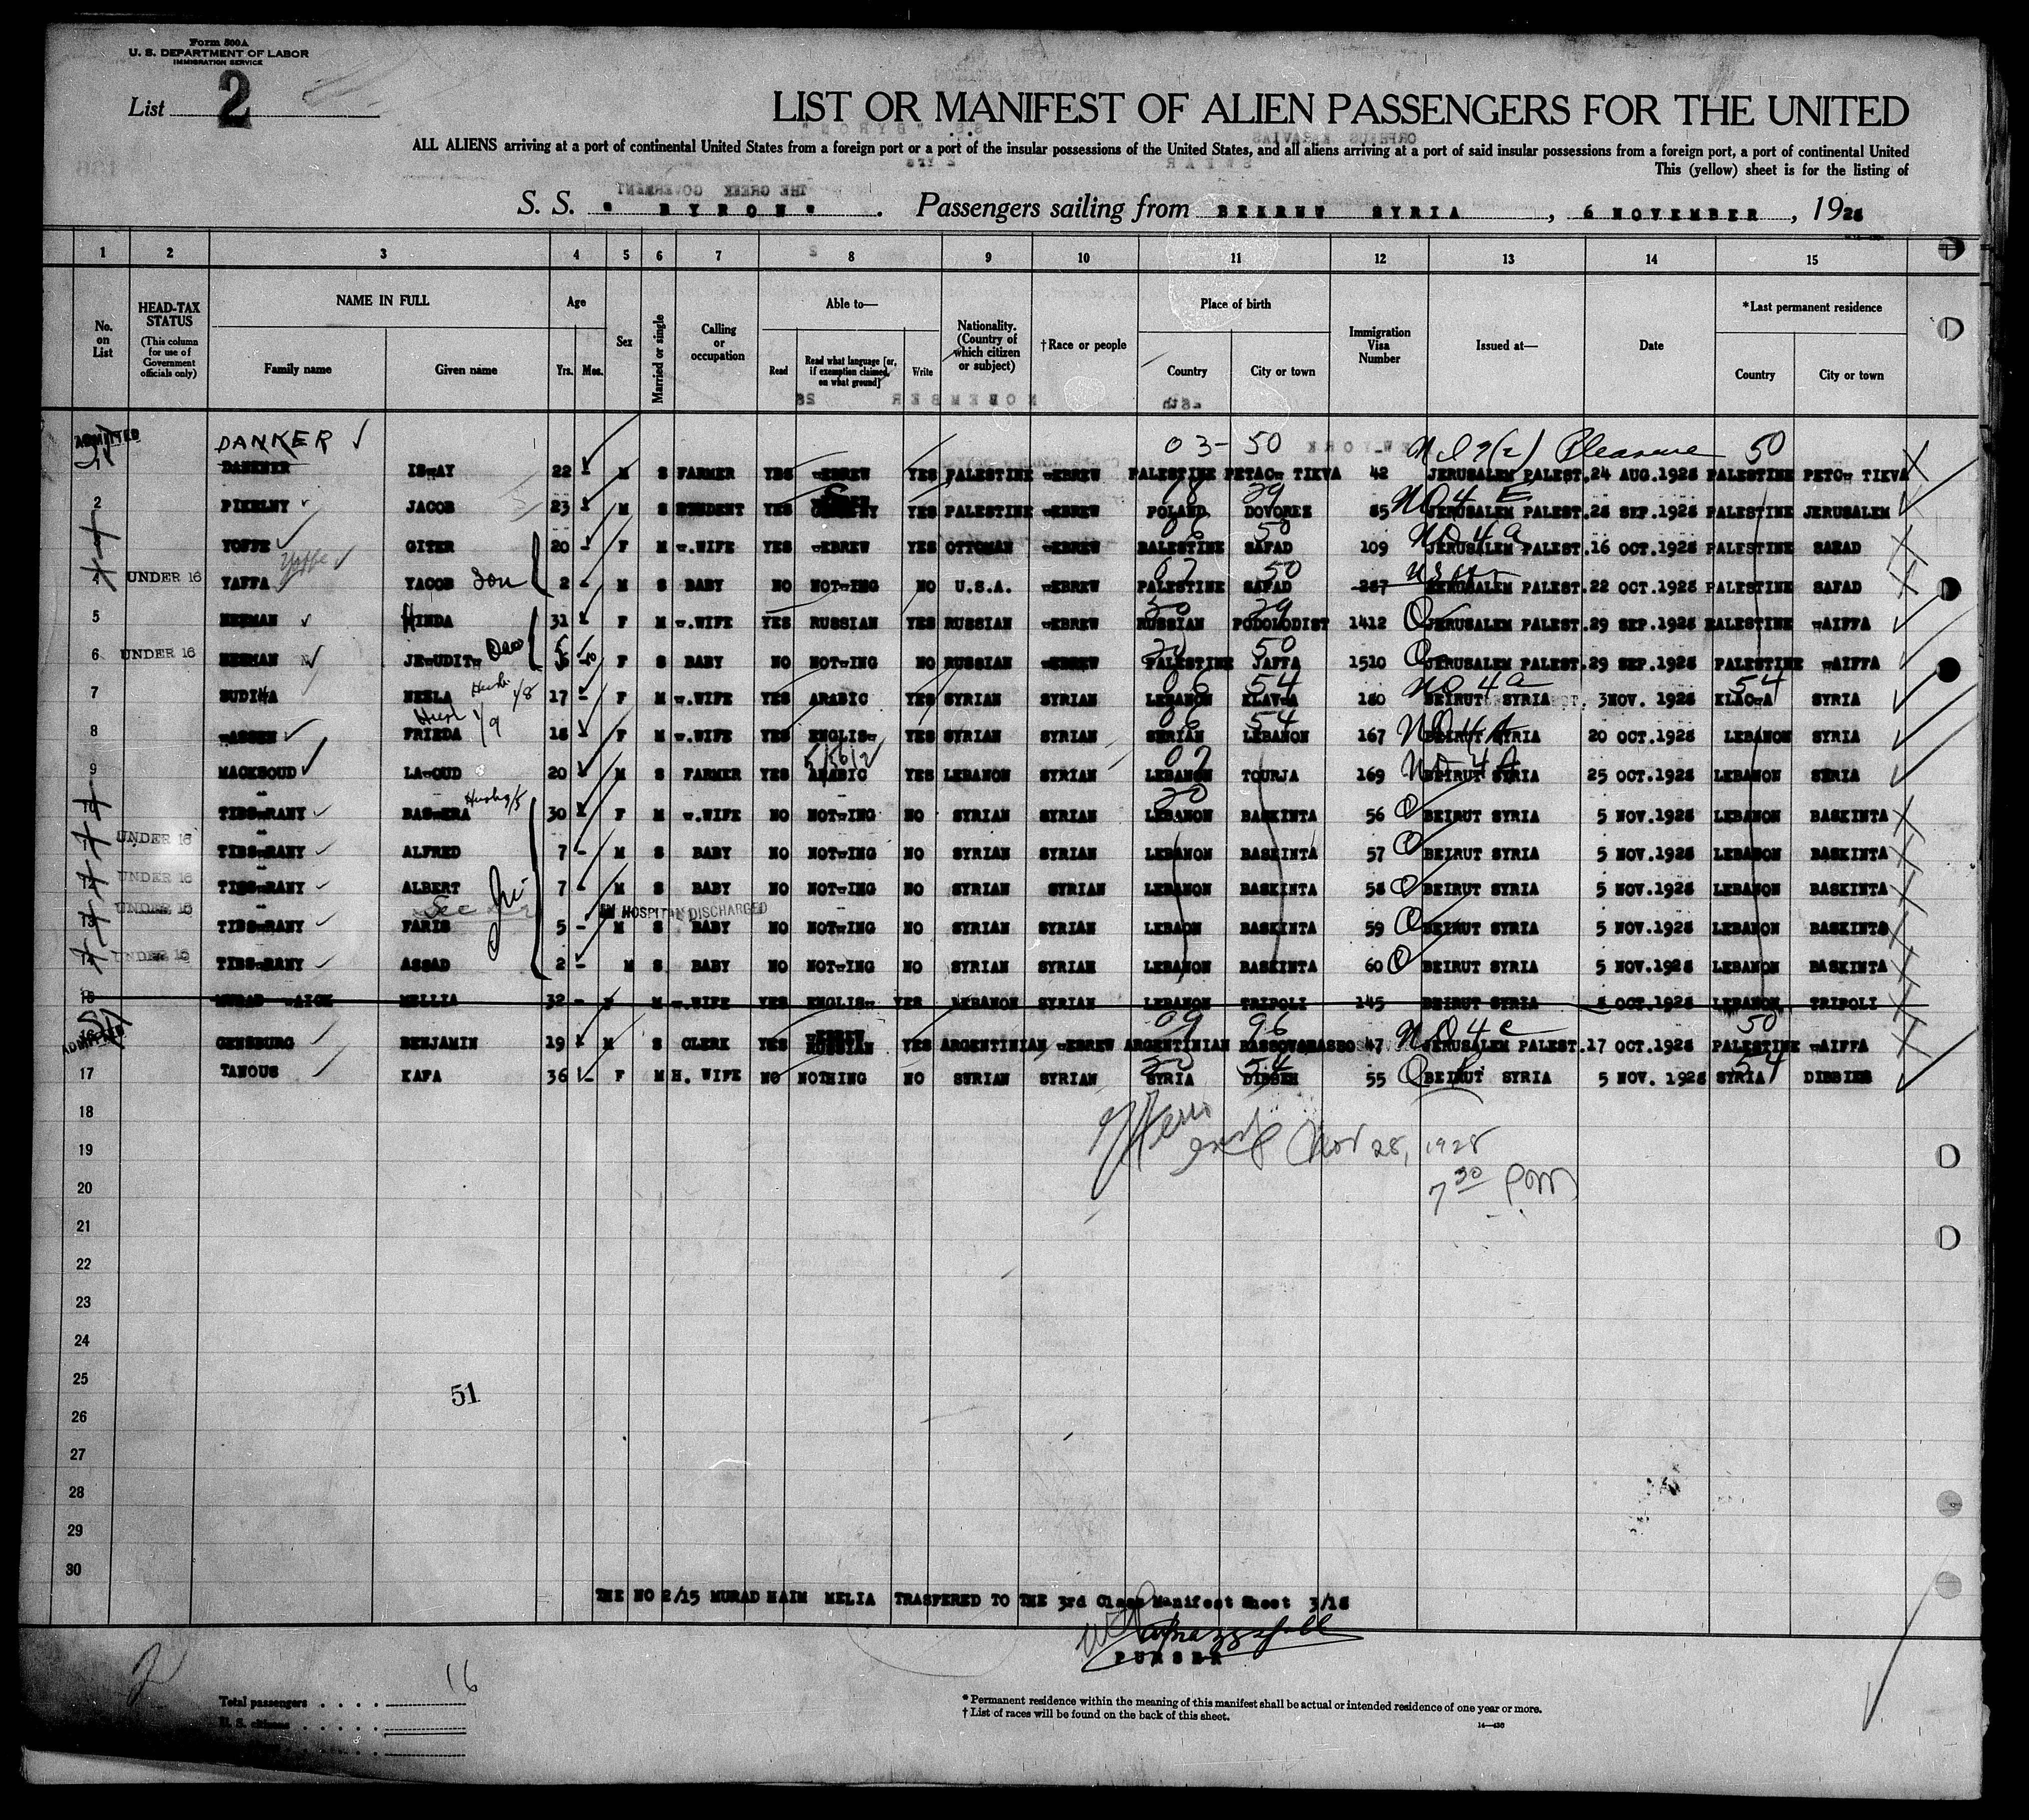 Form 500A
U. S. DEPARTMENT OF LABOR
IMMIGRATION SERVICE
List 2
LIST OR MANIFEST OF ALIEN PASSENGERS FOR THE UNITED
ALL ALIENS arriving at a port of continental United States from a foreign port or a port of the insular possessions of the United States, and all aliens arriving at a port of said insular possessions from a foreign port, a port of continental United
This (yellow) sheet is for the listing of
S. S. " BYRON " . Passengers sailing from BEIRUT SYRIA , 6 NOVEMBER , 1928
1 2 3 4 5 6 7 8 9 10 11 12 13 14 15
No. on List
HEAD-TAX STATUS (This column for use of Government officials only)
NAME IN FULL
Family name Given name
Age Yrs. Mos.
Sex
Married or single
Calling or occupation
Able to—
Read Read what language [or, if exemption claimed, on what ground] Write
Nationality. (Country of which citizen or subject)
†Race or people
Place of birth
Country City or town
Immigration Visa Number
Issued at—
Date
*Last permanent residence
Country City or town
ADMITTED DANKER 03- 50 Pleasure 50
DANKNER ISHAY 22 - M S FARMER YES HEBREW YES PALESTINE HEBREW PALESTINE PETACH TIKVA 42 JERUSALEM PALEST. 24 AUG.1928 PALESTINE PETCH TIKVA
2 PIKELNY JACOB 23 M S STUDENT YES YES PALESTINE HEBREW POLAND 85 JERUSALEM PALEST. 28 SEP.1928 PALESTINE JERUSALEM
YOFFE GITER 20 - F M H.WIFE YES HEBREW YES OTTOMAN HEBREW PALESTINE SAFAD 109 JERUSALEM PALEST. 16 OCT.1928 PALESTINE SAFAD
4 UNDER 16 YAFFA Yoffe YACOB Son 2 - M S BABY NO NOTHING NO U.S.A. HEBREW PALESTINE SAFAD 287 JERUSALEM PALEST. 22 OCT.1928 PALESTINE SAFAD
5 NEEMAN HINDA 31 F M H.WIFE YES RUSSIAN YES RUSSIAN HEBREW RUSSIAN PODOLODIST 1412 JERUSALEM PALEST. 29 SEP.1928 PALESTINE HAIFFA
6 UNDER 16 NEEMAN JEHUDITH 5 10 F S BABY NO NOTHING NO RUSSIAN HEBREW PALESTINE JAFFA 1510 JERUSALEM PALEST. 29 SEP.1928 PALESTINE HAIFFA
7 SUDIHA NEELA 17 - F M H.WIFE YES ARABIC YES SYRIAN SYRIAN LEBANON 180 BEIRUT SYRIA 3NOV. 1928 SYRIA
8 HASSEN FRIEDA 18 F M H.WIFE YES ENGLISH YES SYRIAN SYRIAN SYRIAN LEBANON 167 BEIRUT SYRIA 20 OCT.1928 LEBANON SYRIA
9 MACKSOUD LAHOUD 20 M S FARMER YES ARABIC YES LEBANON SYRIAN LEBANON TOURJA 169 BEIRUT SYRIA 25 OCT.1928 LEBANON SYRIA
10 TIBSHRANY BASHERA 30 F M H.WIFE NO NOTHING NO SYRIAN SYRIAN LEBANON BASKINTA 56 BEIRUT SYRIA 5 NOV.1928 LEBANON BASKINTA
UNDER 16 TIBSHRANY ALFRED 7 - M S BABY NO NOTHING NO SYRIAN SYRIAN LEBANON BASKINTA 57 BEIRUT SYRIA 5 NOV.1928 LEBANON BASKINTA
12 UNDER 16 TIBSHRANY ALBERT 7 - M S BABY NO NOTHING NO SYRIAN SYRIAN LEBANON BASKINTA 58 BEIRUT SYRIA 5 NOV.1928 LEBANON BASKINTA
IN HOSPITAL DISCHARGED
13 UNDER 16 TIBSHRANY FARIS 5 - M S BABY NO NOTHING NO SYRIAN SYRIAN LEBAON BASKINTA 59 BEIRUT SYRIA 5 NOV.1928 LEBANON BASKINTA
14 UNDER 16 TIBSHRANY ASSAD 2 - M S BABY NO NOTHING NO SYRIAN SYRIAN LEBANON BASKINTA 60 BEIRUT SYRIA 5 NOV.1928 LEBANON BASKINTA
15 MURAD HAICK MELLIA 32 - F M H.WIFE YES ENGLISH YES LEBANON SYRIAN LEBANON TRIPOLI 145 BEIRUT SYRIA OCT.1928 LEBANON TRIPOLI
16 ADMITTED GENSBURG BENJAMIN 19 M S CLERK YES HEBREW RUSSIAN YES ARGENTINIAN HEBREW ARGENTINIAN 47 JERUSALEM PALEST. 17 OCT.1928 PALESTINE HAIFFA
17 TANOUS KAFA 36 - F M H. WIFE NO NOTHING NO SYRIAN SYRIAN SYRIA DIBBEH 55 BEIRUT SYRIA 5 NOV. 1928 SYRIA DIBBIEH
18
19 Nov 28, 1928
20 7 30 pm
21
22
23
24
25
51
26
27
28
29
30
THE NO 2/15 MURAD HAIM MELIA TRASFERED TO THE 3rd Class Manifest Sheet 3/18
PURSER
Total passengers . . . . 16
U. S. citizens . . . . .
* Permanent residence within the meaning of this manifest shall be actual or intended residence of one year or more.
† List of races will be found on the back of this sheet.
14—430